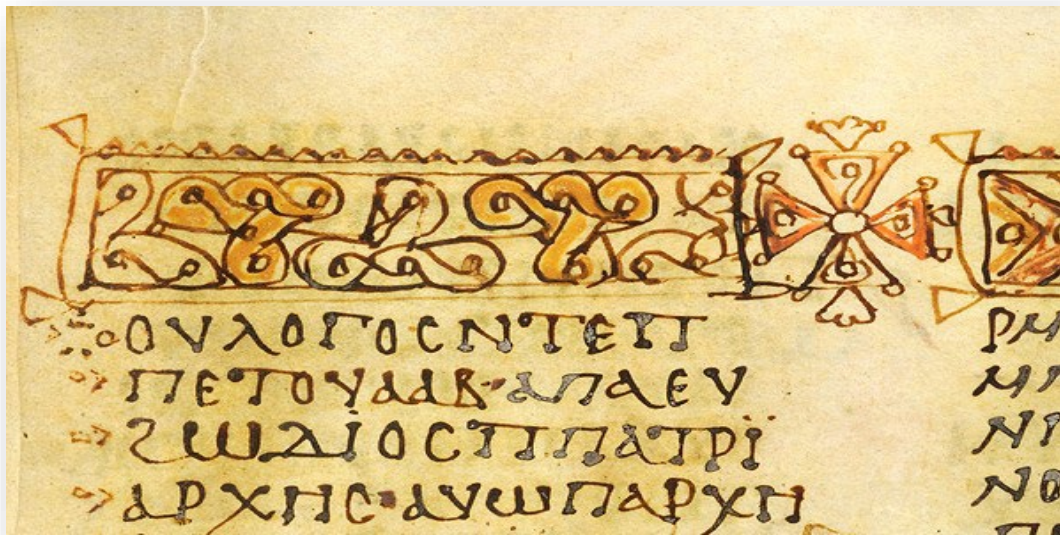 ⲟⲩⲗⲟⲅⲟⲥⲛⲧⲉⲡ
ⲡⲉⲧⲟⲩⲁⲁⲃ·ⲁⲡⲁⲉⲩ
ϩⲱⲇⲓⲟⲥⲡⲡⲁⲧⲣⲓ̈
ⲁⲣⲭⲏⲥ·ⲁⲩⲱⲡⲁⲣⲭⲏ